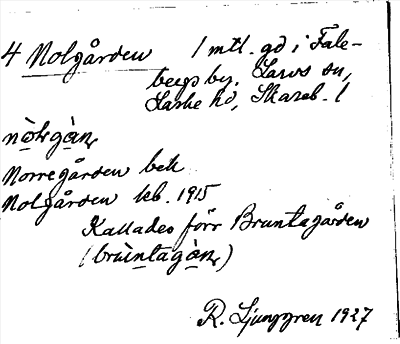 4 Nolgården 1 mtl. gd i Fale-
bergs by. Larvs sn,
Laske hd, Skarab. l
nòlʒgàn
Norregården bek
Nolgården kb. 1915
Kallades förr Bruntagården
(brùntagàn)
R. Ljunggren 1927